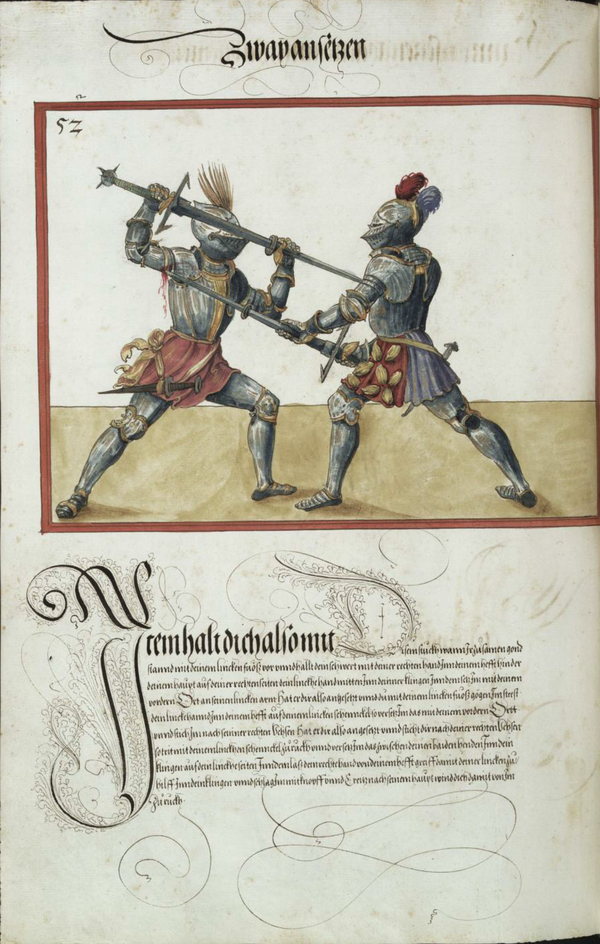 Zway ansetzen
52
Item halt dich also mit Disem stuckh wann Ir zusamen gond
stannd mit deinem lincken fuoß vor vnnd halt dein schwert mit deiner rechten hand Inn deinem hefft hinder
deinem haupt auf deiner rechten seiten dein lincke hand mitten Inn deiner klingen Inn dem setz Im mit deinem
vordern Ort an seinen lincken arm Hat er dir also angesetzt vnnd du mit deinem lincken fuoß gögen Im steest
dein linck hand Inn deinem hefft auf deinem lincken schennckl so versetz Im das mit deinem vordern Ortt
vnnd stich Im nach seiner rechten Vchsen Hat er dir also angesetzt vnnd sticht dir nach deiner rechten Vchsen
so trit mit deinem linckhen schennckel zuruckh vnnd versetz Im das zwischen deinen baiden henden Inn dein
klingen auf dein linckhe seiten Inn dem las dein recht hand von deinem hefft greiff damit deiner lincken zu
hilff Inn dein klingen vnnd schlag Im mit knopff vnnd Creitz nach seinem haupt wend dich damit von Im
Zuruckh